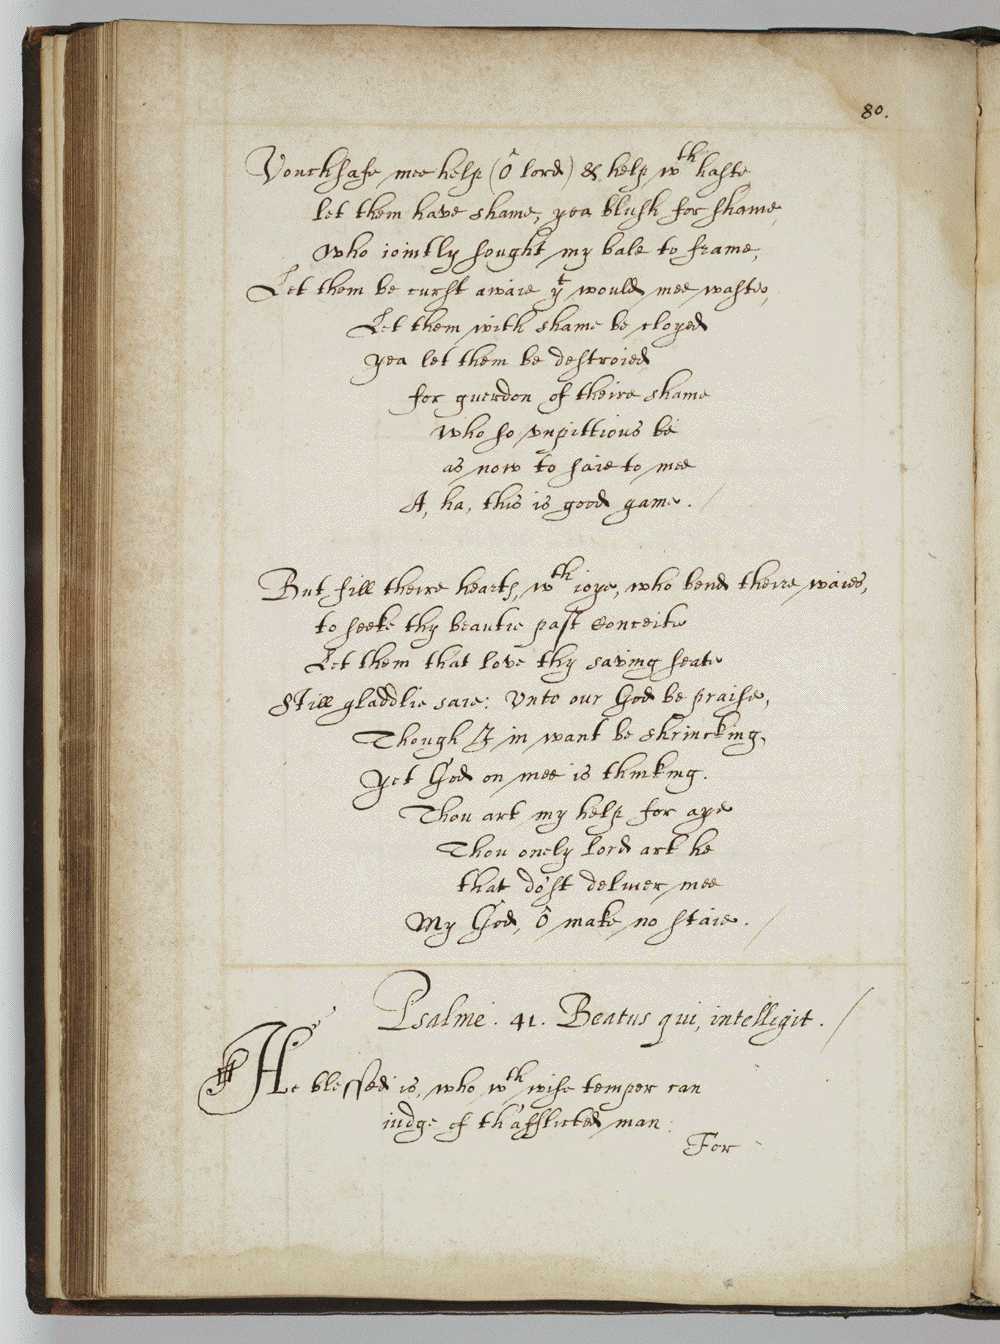 80.
Vouchsafe mee help (Ô lord) & help wth haste
let them have shame, yea blush for shame,
who iointly sought my bale to frame,
Let them be curst awaie yt would mee waste,
Let them with shame be cloyed
yea let them be destroied
for guerdon of theire shame
who so vnpittious be
as now to saie to mee
A, ha, this is good game.
But fill theire hearts, wth ioye, who bend theire waies,
to seeke thy beautie past conceite
Let them that love thy saving seate
Still gladdlie saie: Vnto our God be praise,
Though I in want be shrincking,
yet God on mee is thinking.
Thou art my help for aye
Thou onely lord art he
that dost deliver mee
My God, Ô make no staie.
Psalme. 41. Beatus qui, intelligit.
He blessed is, who wth wise temper can
iudge of th'afflicted man:
For